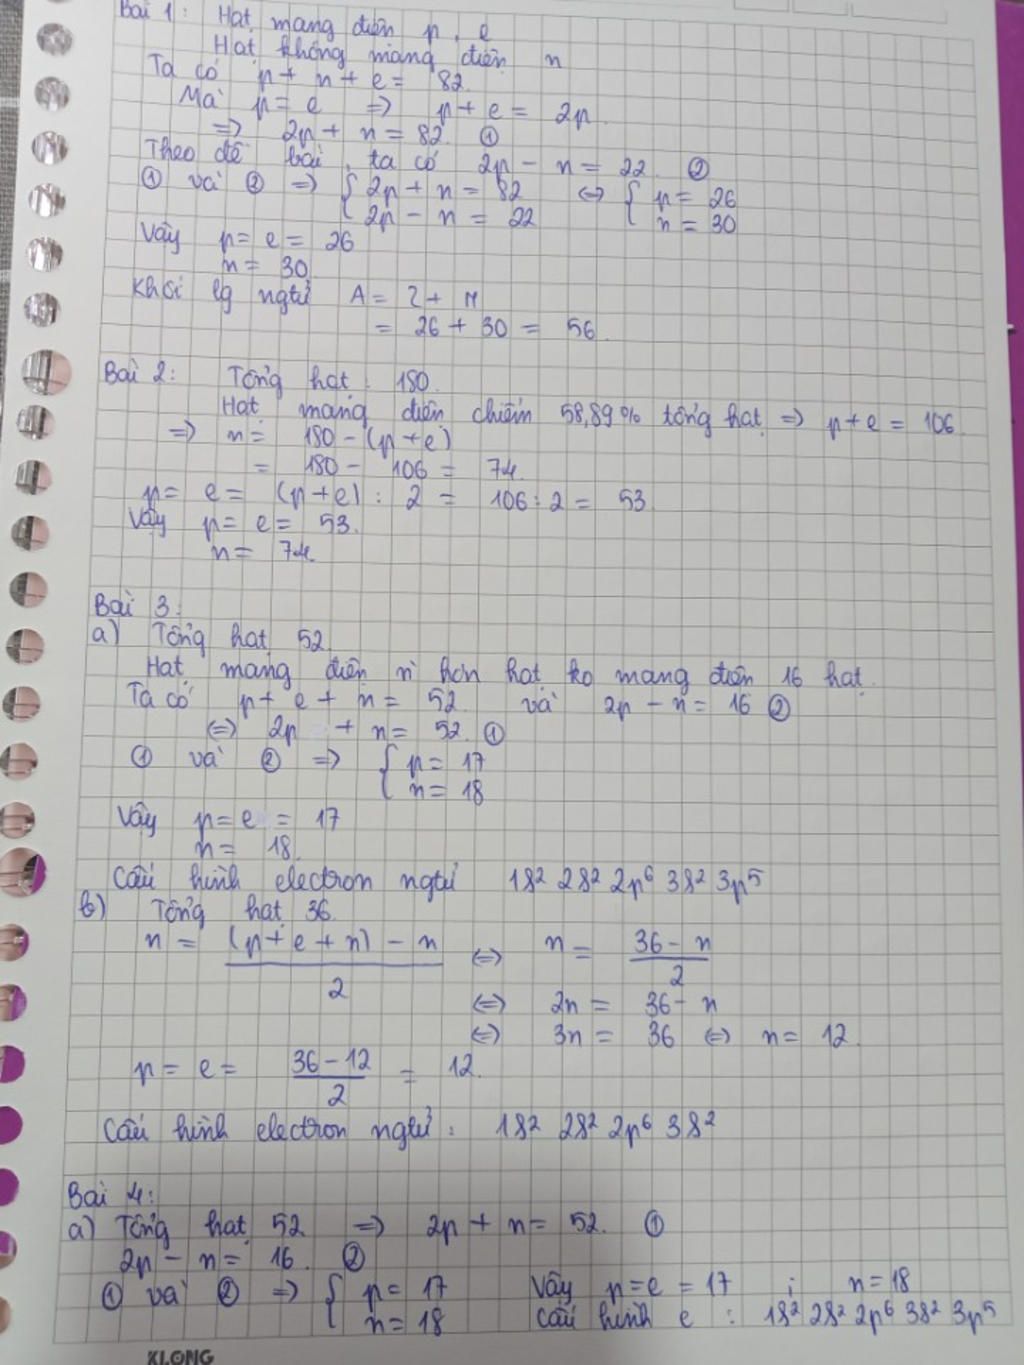 Bài 1: Hạt mang điện p, e
Hạt không mang điện n
Ta có p + n + e = 82
Mà p = e => p + e = 2p
=> 2p + n = 82 ①
Theo đề bài, ta có 2p - n = 22 ②
① và ② => { 2p + n = 82 <=> { p = 26
2p - n = 22 n = 30
Vậy p = e = 26
n = 30
Khối lg ngtử A = Z + N
= 26 + 30 = 56
Bài 2: Tổng hạt: 180.
Hạt mang điện chiếm 58,89% tổng hạt => p + e = 106
=> n = 180 - (p + e)
= 180 - 106 = 74.
p = e = (p + e) : 2 = 106 : 2 = 53
Vậy p = e = 53.
n = 74.
Bài 3:
a) Tổng hạt 52
Hạt mang điện n` hơn hạt ko mang điện 16 hạt.
Ta có p + e + n = 52 và 2p - n = 16 ②
<=> 2p + n = 52 ①
① và ② => { p = 17
n = 18
Vậy p = e = 17
n = 18.
Cấu hình electron ngtử 1s² 2s² 2p⁶ 3s² 3p⁵
b) Tổng hạt 36.
n = (p + e + n) - n / 2 <=> n = 36 - n / 2
<=> 2n = 36 - n
<=> 3n = 36 <=> n = 12.
p = e = 36 - 12 / 2 = 12.
Cấu hình electron ngtử: 1s² 2s² 2p⁶ 3s²
Bài 4:
a) Tổng hạt 52 => 2p + n = 52. ①
2p - n = 16. ②
① và ② => { p = 17 Vậy p = e = 17 ; n = 18
n = 18 Cấu hình e : 1s² 2s² 2p⁶ 3s² 3p⁵
KLONG